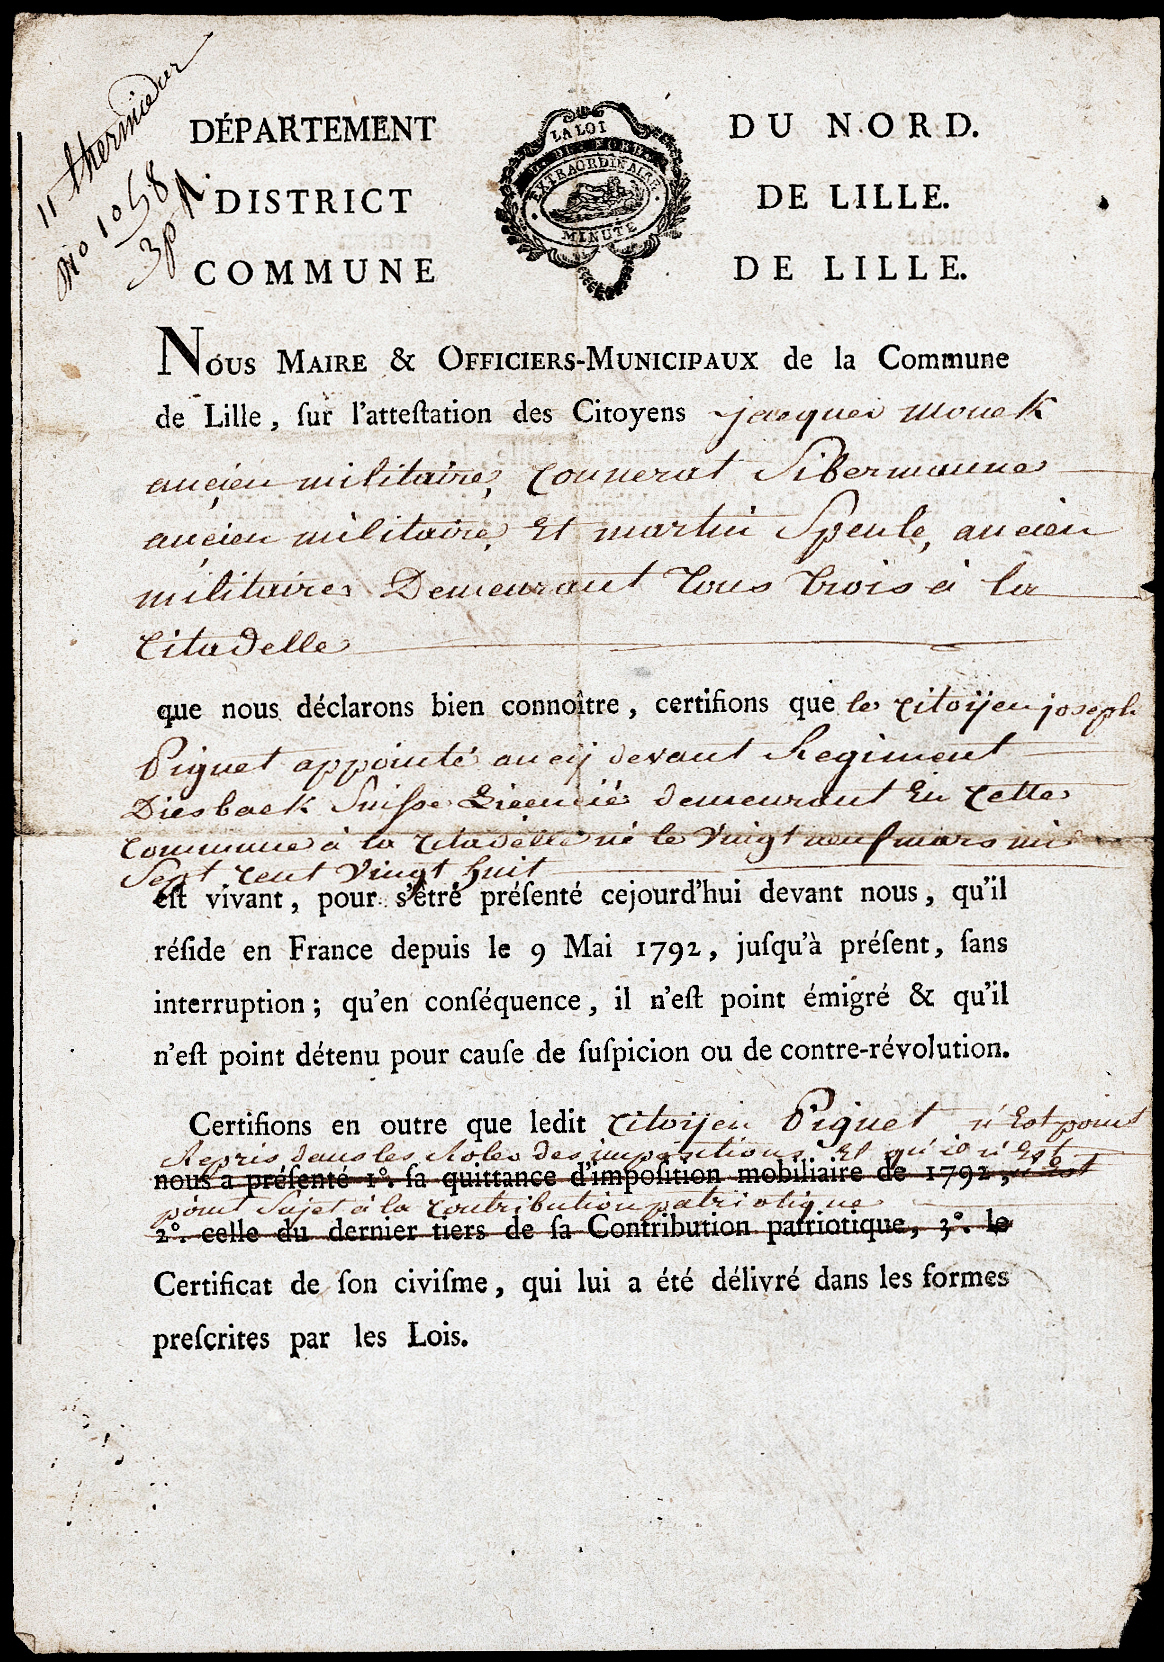 11 thermidor
No 1058
3 p
DÉPARTEMENT DU NORD.
DISTRICT DE LILLE.
COMMUNE DE LILLE.
LA LOI
DU NORD
EXTRAORDINAIRE
MINUTE
NOUS MAIRE & OFFICIERS-MUNICIPAUX de la Commune
de Lille, ſur l'atteſtation des Citoyens jacques Mouck
ancien militaire, Connerat Sibermanne
ancien militaire, Et martin Speule, ancien
militaires Demeurant tous trois a la
Citadelle
que nous déclarons bien connoître, certifions que le Citoijen joseph
Piguet appointé au cij devant Regiment
Diesback Suisse Licencié demeurant En Cette
Commune à la Citadelle né le Vingt neuf mars mil
Sept Cent Vingt huit
eſt vivant, pour s'être préſenté cejourd'hui devant nous, qu'il
réſide en France depuis le 9 Mai 1792, juſqu'à préſent, ſans
interruption; qu'en conſéquence, il n'eſt point émigré & qu'il
n'eſt point détenu pour cauſe de ſuſpicion ou de contre-révolution.
Certifions en outre que ledit Citoijen Piguet n'Est point
Repris dans les Roles des impositions Et qu'il n'Est
nous a préſenté 1°. ſa quittance d'impoſition mobiliaire de 1792,
point Sujet à la Contribution patriotique
2°. celle du dernier tiers de ſa Contribution patriotique, 3°. le
Certificat de ſon civiſme, qui lui a été délivré dans les formes
preſcrites par les Lois.